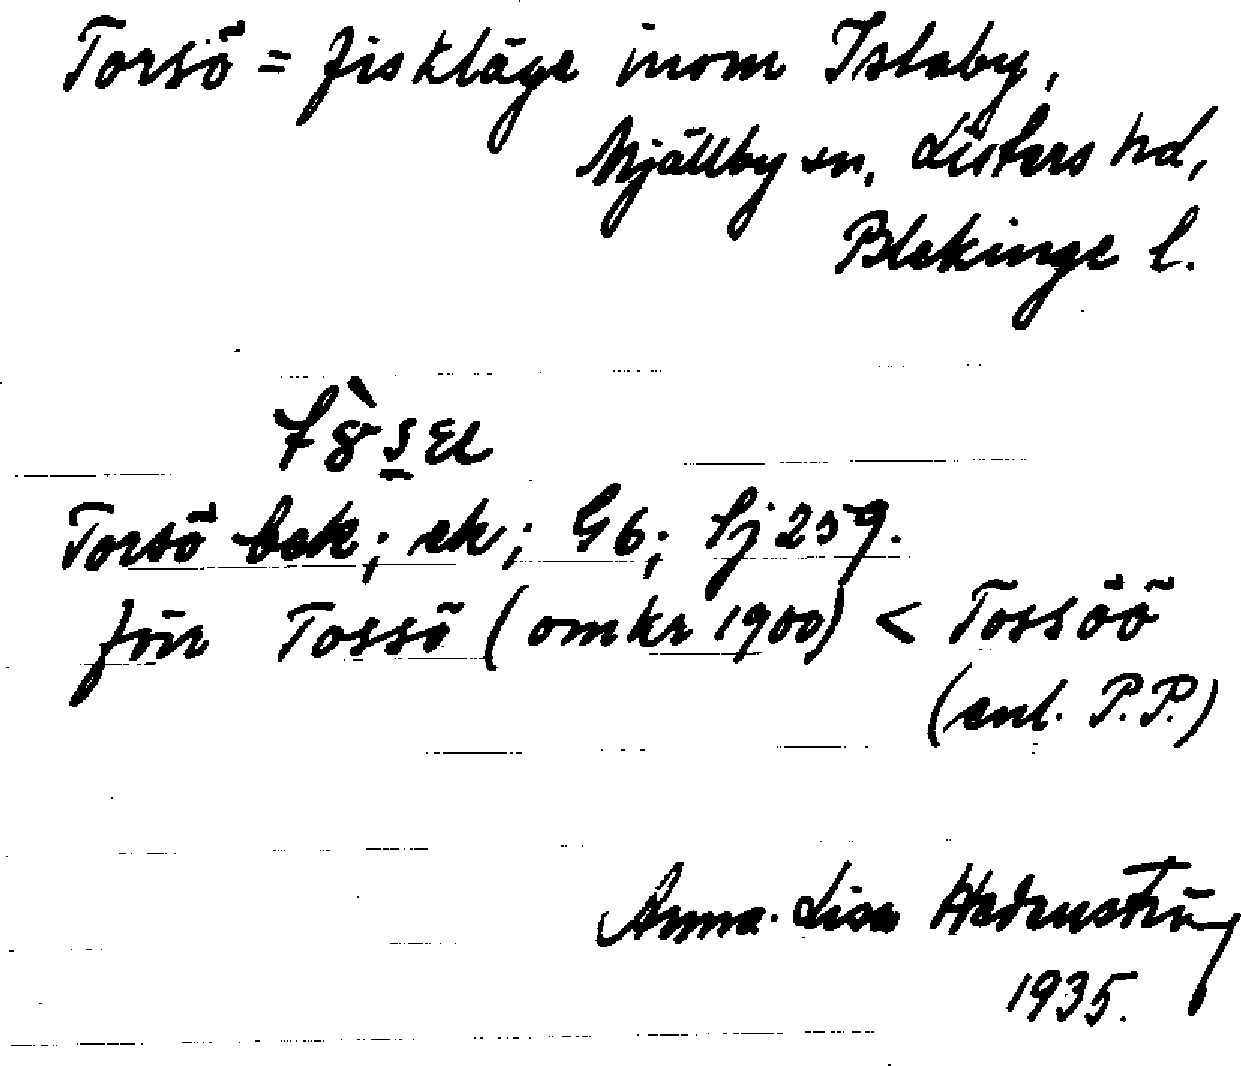 Torsö = fiskläge inom Istaby,
Mjällby sn, Listers hd,
Blekinge l.
Torsö bek; ek; G6; Sj 259.
förr Tossö (omkr 1900) < Tossöö
(enl. P.P.)
Anna-Lisa Hedenström
1935.